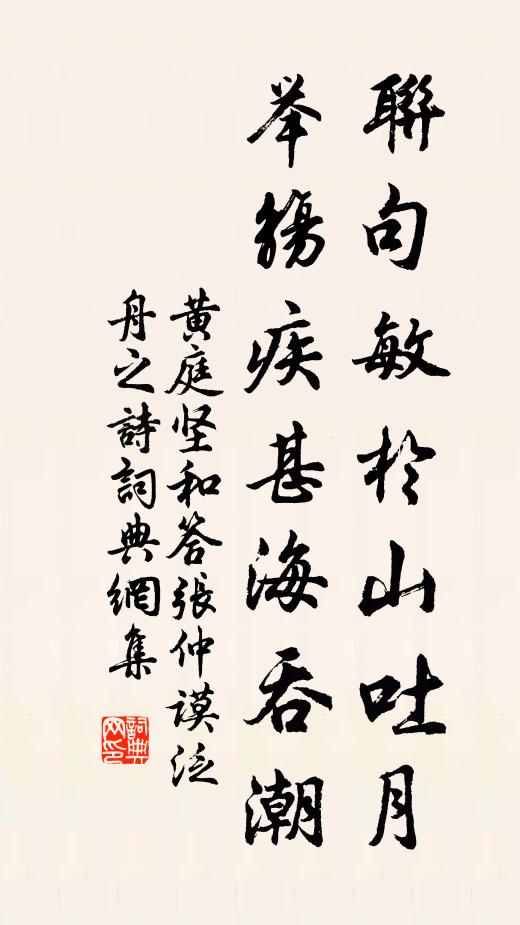 聯句敏於山吐月
举觴疾甚海吞潮
黄庭坚和答張仲謨泛
舟之詩詞典網集
詞典
网印